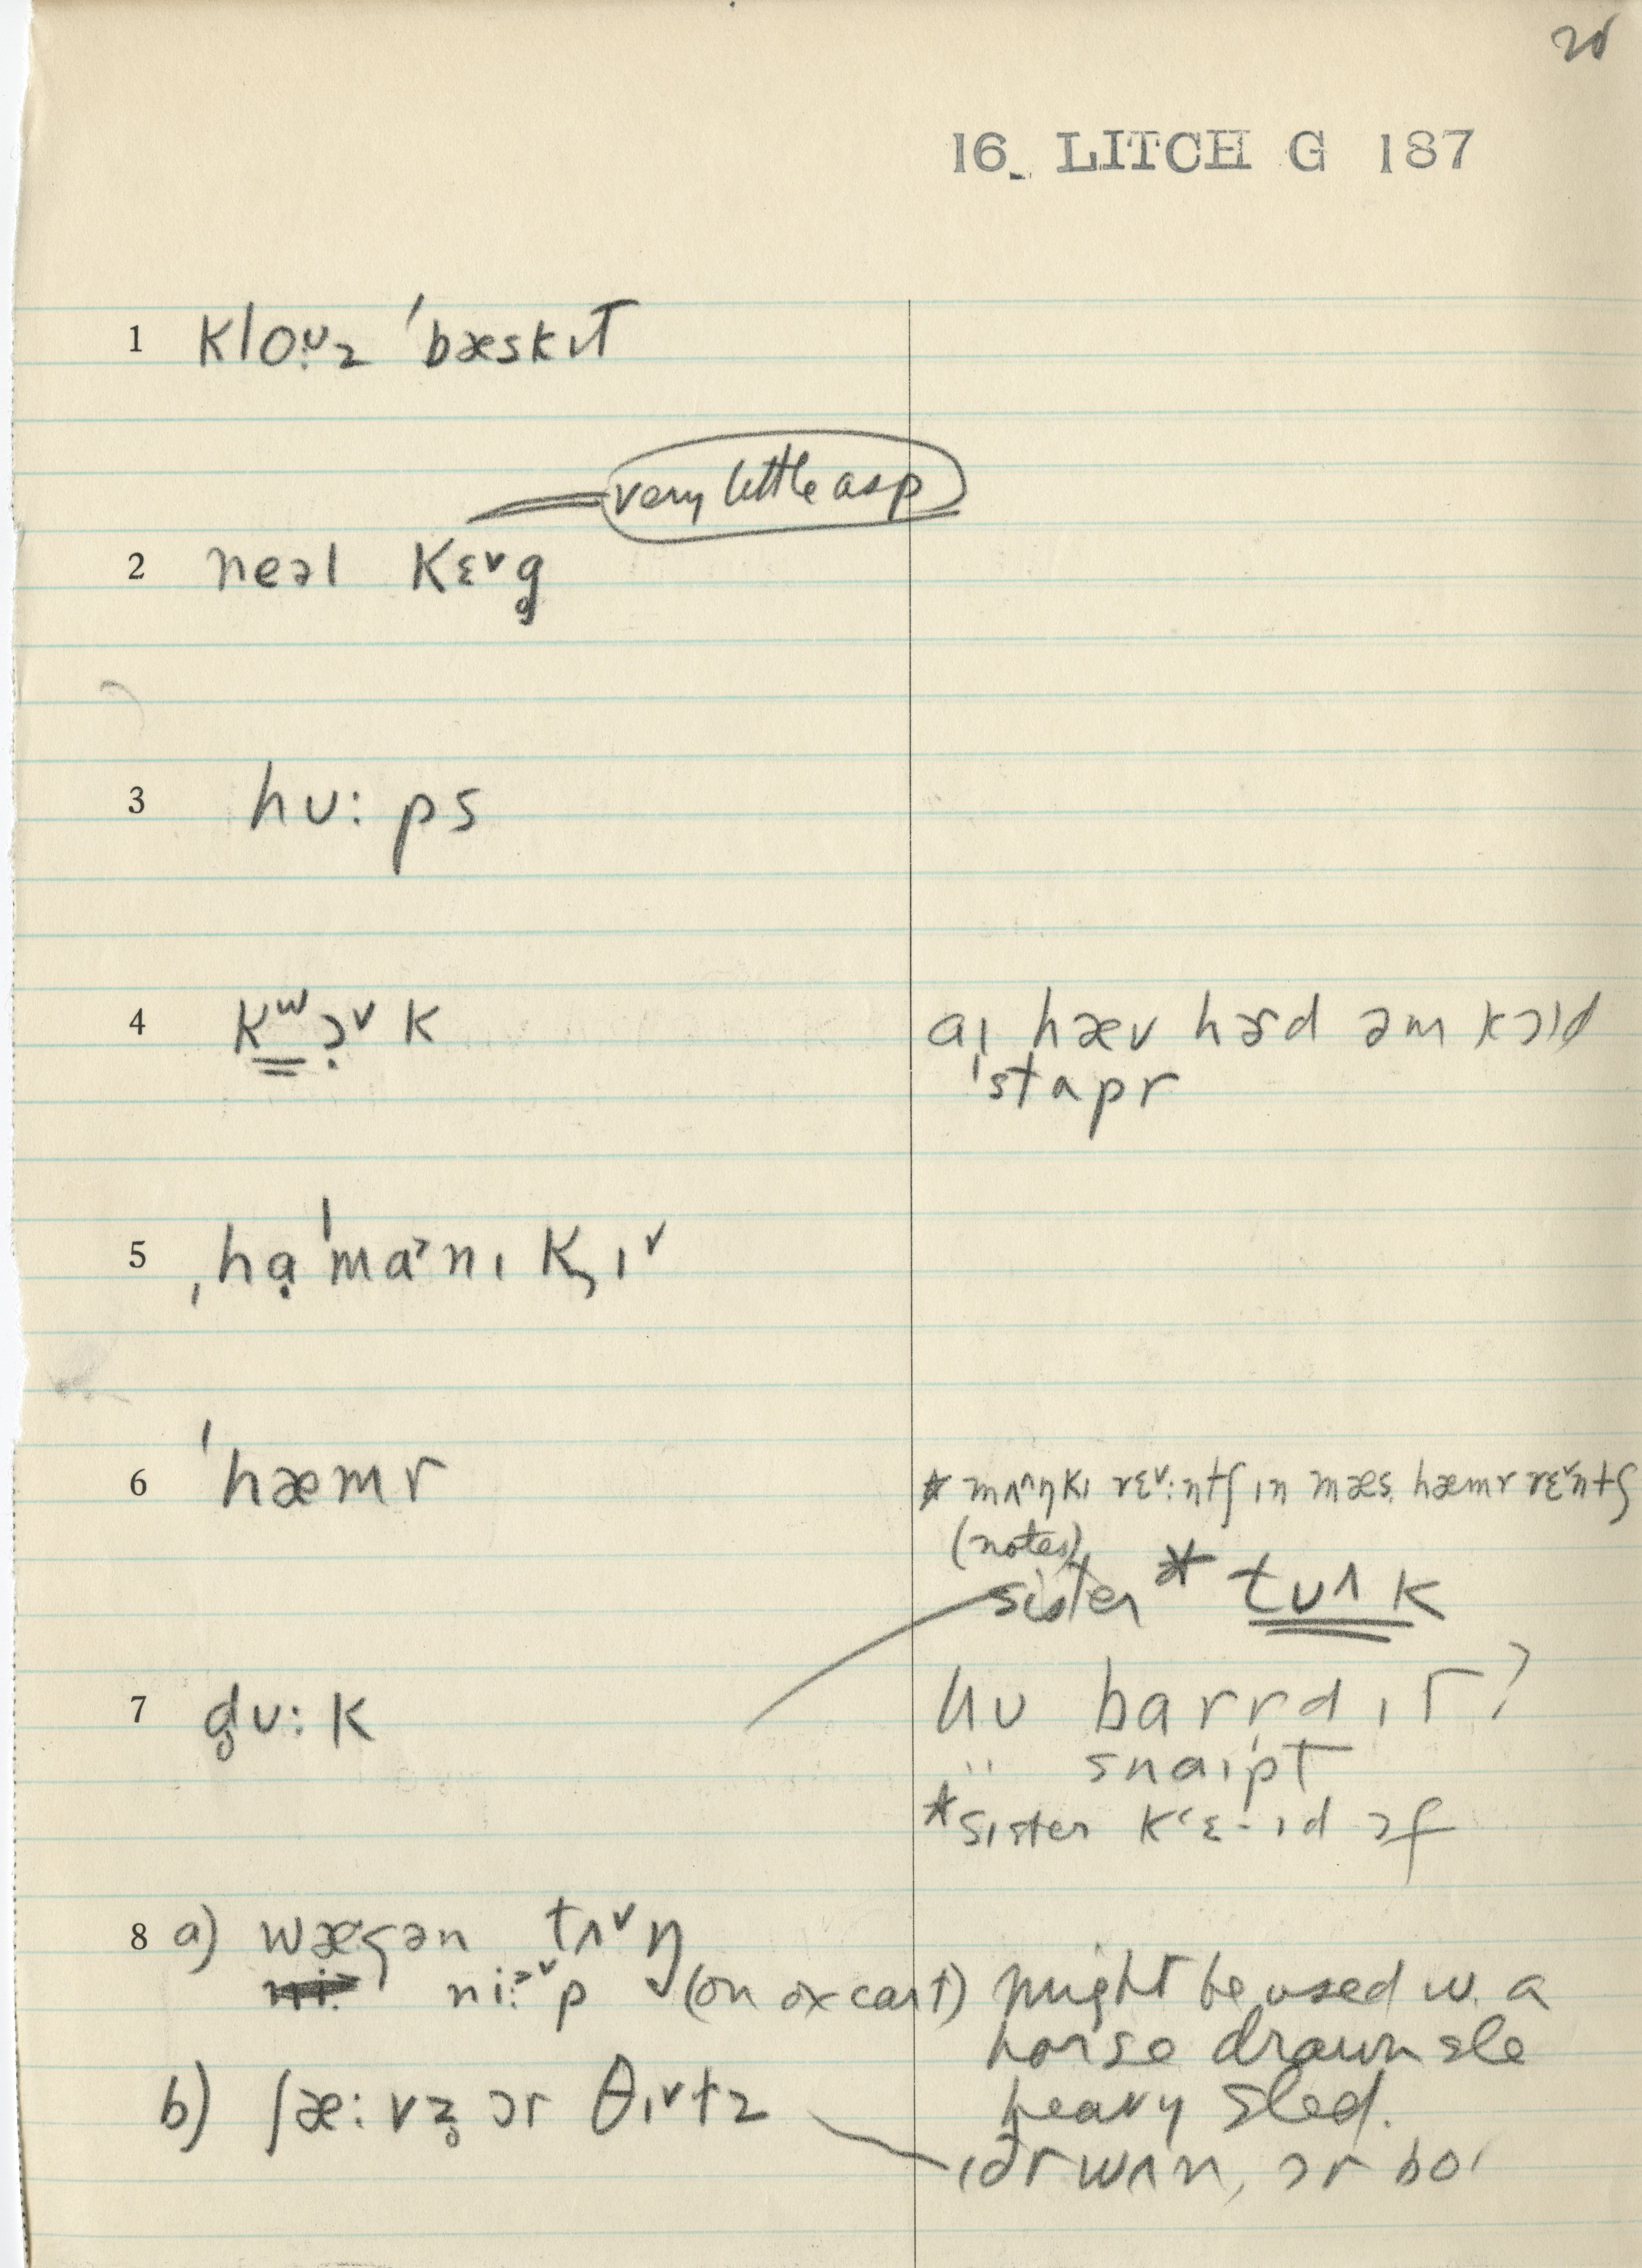 20
16 LITCH G 187
1 kloʊ̣z ˈbæskɪt
very little asp
2 neəl kɛ˅g̥
3 hʊ: ps
4 kʷɔ̣˅k aɪ hæv hɚd əm kɔld
ˈstapr
5 ˌhạˈma˃nɪ kʒɪ˅
6 ˈhæmr * mʌ^ŋkɪ rɛ˅:ntʃ ɪn mæs. hæmr rɛ˅ntʃ
(notes)
sister * tʊʌ k
7 d̥ʊ: k hʊ barrd ɪt?
" snaɪpt
*sister kʻɛ-ɪd ɔf
8 a) wægən tʌ˅ŋ
ni:˃˅p (on ox cart) might be used w. a
horse drawn sle
heavy sled.
b) ʃæ: vz̥ ɔr θɪ˅tz
ɪðr wʌn, ɔr bo